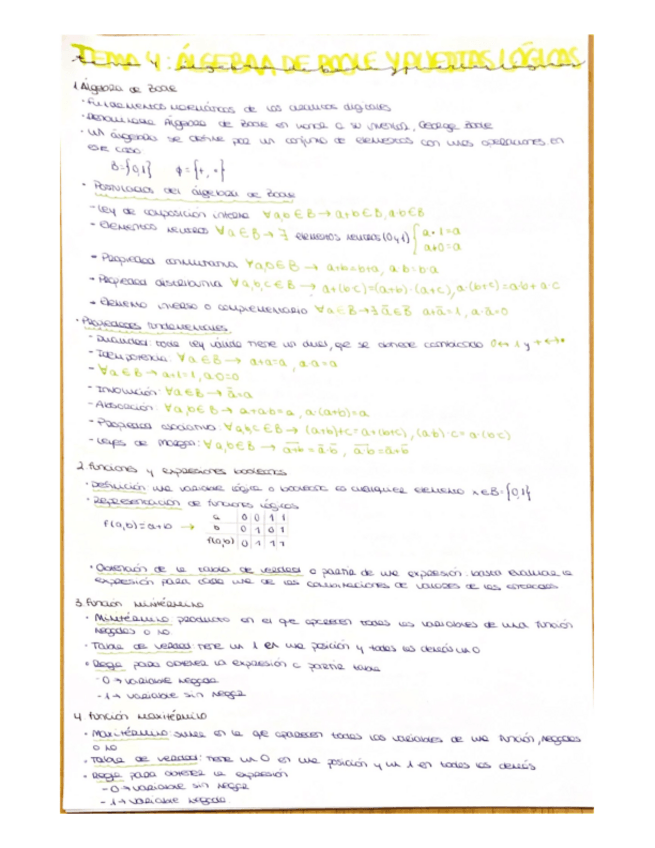 TEMA 4: ÁLGEBRA DE BOOLE Y PUERTAS LÓGICAS
1. Álgebra de Boole
· Fundamentos matemáticos de los circuitos digitales
· Denominada Álgebra de Boole en honor a su inventor, George Boole
· Un álgebra se define por un conjunto de elementos con unas operaciones. En
este caso:
B={0,1} Φ={+, ·}
· Postulados del álgebra de Boole
- Ley de composición interna ∀a,b∈B → a+b∈B, a·b∈B
- Elementos neutros ∀a∈B → ∃ elementos neutros (0 y 1) { a·1=a
a+0=a
- Propiedad conmutativa ∀a,b∈B → a+b=b+a, a·b=b·a
- Propiedad distributiva ∀a,b,c∈B → a+(b·c)=(a+b)·(a+c), a·(b+c)=a·b+a·c
- Elemento inverso o complementario ∀a∈B→∃ a̅∈B a+a̅=1, a·a̅=0
· Propiedades fundamentales.
- Dualidad: toda ley válida tiene una dual, que se obtiene cambiando 0↔1 y +↔·
- Idempotencia: ∀a∈B → a+a=a, a·a=a
- ∀a∈B → a+1=1, a·0=0
- Involución: ∀a∈B → a̿=a
- Absorción: ∀a,b∈B → a+ab=a, a·(a+b)=a
- Propiedad asociativa: ∀a,b,c∈B → (a+b)+c=a+(b+c), (a·b)·c=a·(b·c)
- Leyes de Morgan: ∀a,b∈B → a̅+̅b̅=a̅·b̅, a̅·̅b̅=a̅+b̅
2. Funciones y expresiones booleanas
· Definición: una variable lógica o booleana es cualquier elemento x∈B={0,1}
· Representación de funciones lógicas
a 0 0 1 1
f(a,b)=a+b → b 0 1 0 1
f(a,b) 0 1 1 1
· Obtención de la tabla de verdad a partir de una expresión: basta evaluar la
expresión para cada una de las combinaciones de valores de las entradas
3. Función minitérmino
· Minitérmino: producto en el que aparecen todas las variables de una función
negadas o no
· Tabla de verdad: tiene un 1 en una posición y todas las demás un 0
· Regla para obtener la expresión a partir tabla
- 0 → variable negada
- 1 → variable sin negar
4. Función maxitérmino
· Maxitérmino: suma en la que aparecen todas las variables de una función, negadas
o no
· Tabla de verdad: tiene un 0 en una posición y un 1 en todas las demás
· Regla para obtener la expresión
- 0 → variable sin negar
- 1 → variable negada